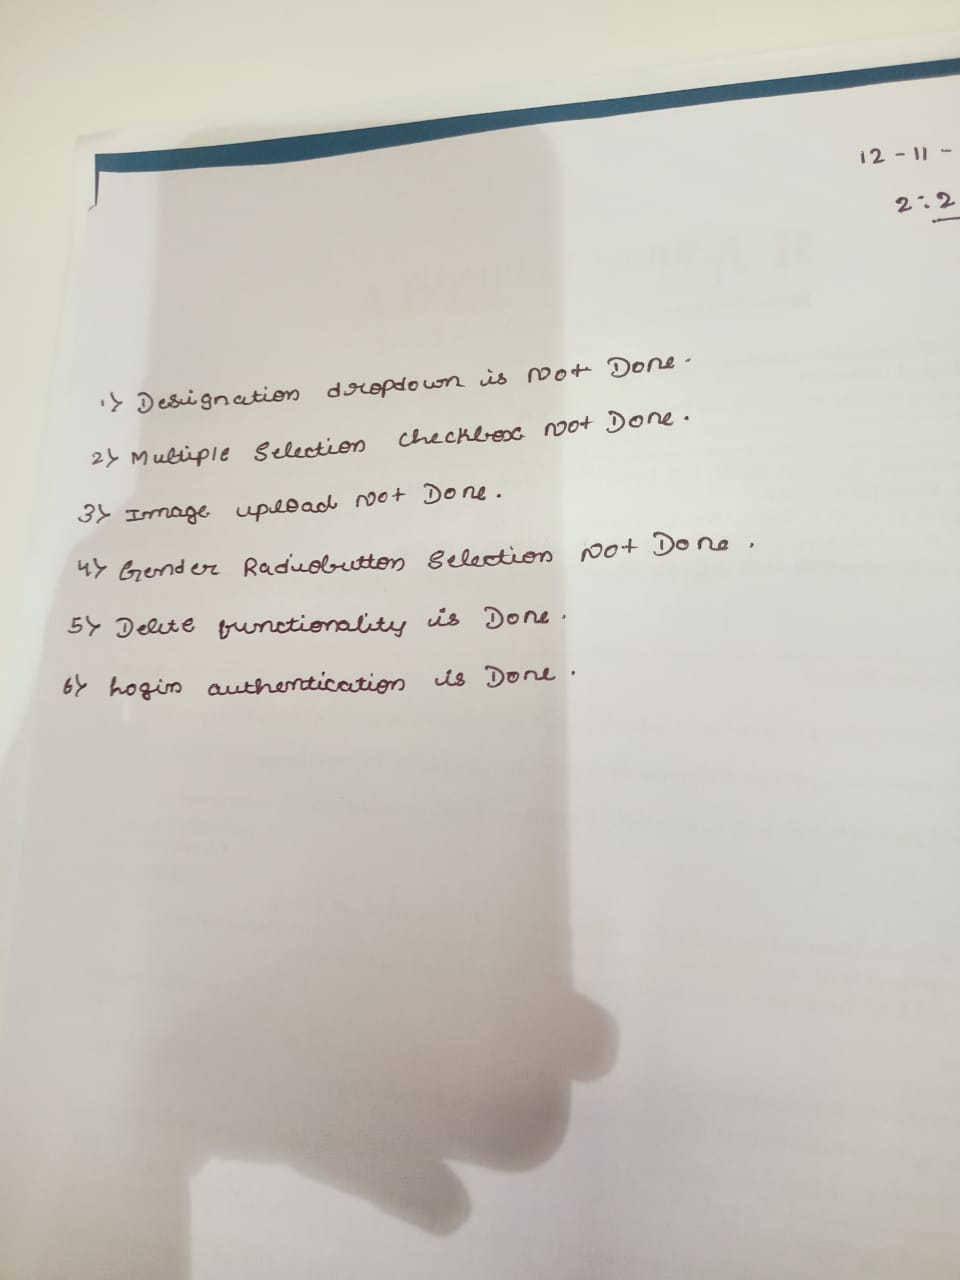 12-11-
2:2
1) Designation dropdown is not Done.
2) Multiple Selection checkbox not Done.
3) Image upload not Done.
4) Gender Radiobutton Selection not Done.
5) Delete functionality is Done.
6) Login authentication is Done.